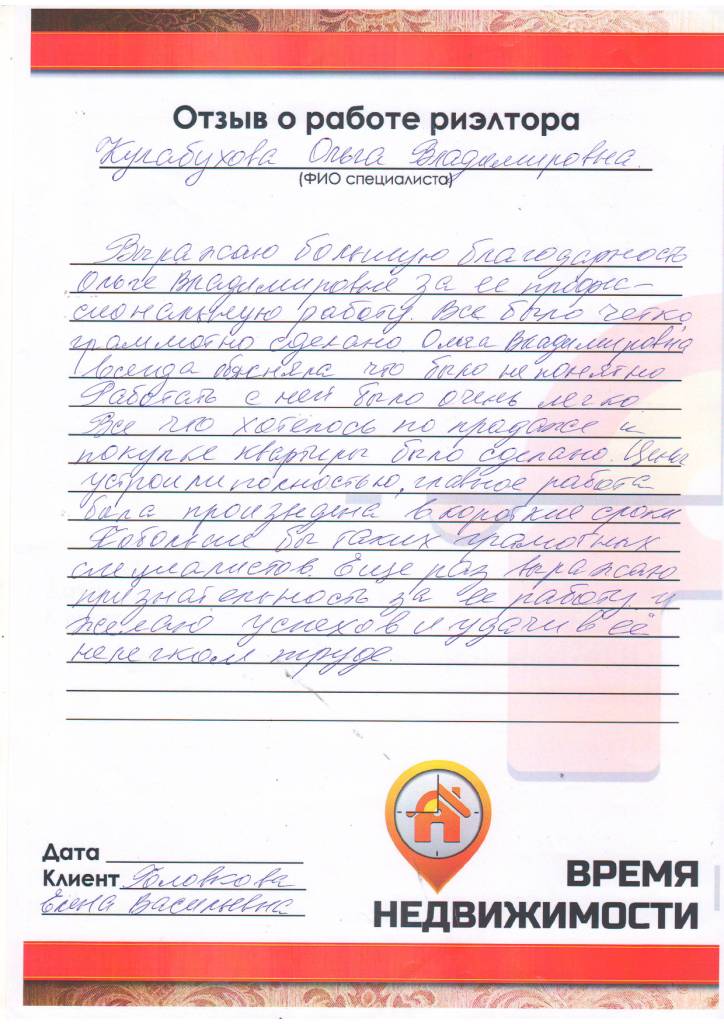 Отзыв о работе риэлтора
Кугабухова Ольга Владимировна.
(ФИО специалиста)
Выражаю большую благодарность
Ольге Владимировне за ее профес-
сиональную работу. Все было четко,
граммотно сделано Ольга Владимировна
всегда объясняла что было не понятно
Работать с ней было очень легко
Все что хотелось по продаже и
покупке квартиры было сделано. Цены
устроили полностью, главное работа
была произведена в короткие сроки
Побольше бы таких грамотных
специалистов. Еще раз выражаю
признательность за ее работу и
желаю успехов и удачи в её
нелегком труде.
Дата
Клиент Головкова
Елена Васильевна
ВРЕМЯ
НЕДВИЖИМОСТИ